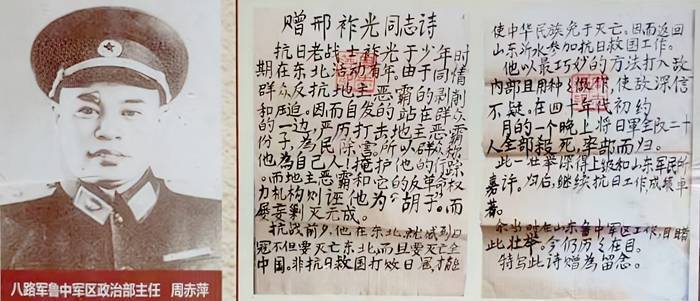 八路军鲁中军区政治部主任 周赤萍
赠邢祚光同志诗
抗日老战士祚光于少年时
期在东北活动有年。由于同情
群众反抗地主、恶霸的剥削
和压迫。因而自发的站在群众
的一边，严厉打击地主、恶霸
份子，为民除害所以群众称
他为自己人！掩护他的行踪
。而地主恶霸和它的反革命权
力机构则诬他为“胡子”。而
屡要剿灭无成。
抗战前夕，他在东北，就感到日
寇不但要灭亡东北，而且要灭亡全
中国。非抗日救国打败日
使中华民族免于灭亡。因而返回
山东沂水参加抗日救国工作。
他以最巧妙的方法打入敌
内部且用种种做作，使敌深信
不疑。在四十年代初约
月的一个晚上将日军全院二十
人全部杀死，率部而归。
此一壮举深得上级和山东军民的
嘉许。为后，继续抗日工作成绩卓
著。
余当时在山东鲁中军区工作，目睹
此壮举。今仍历历在目。
特写此诗赠为留念。